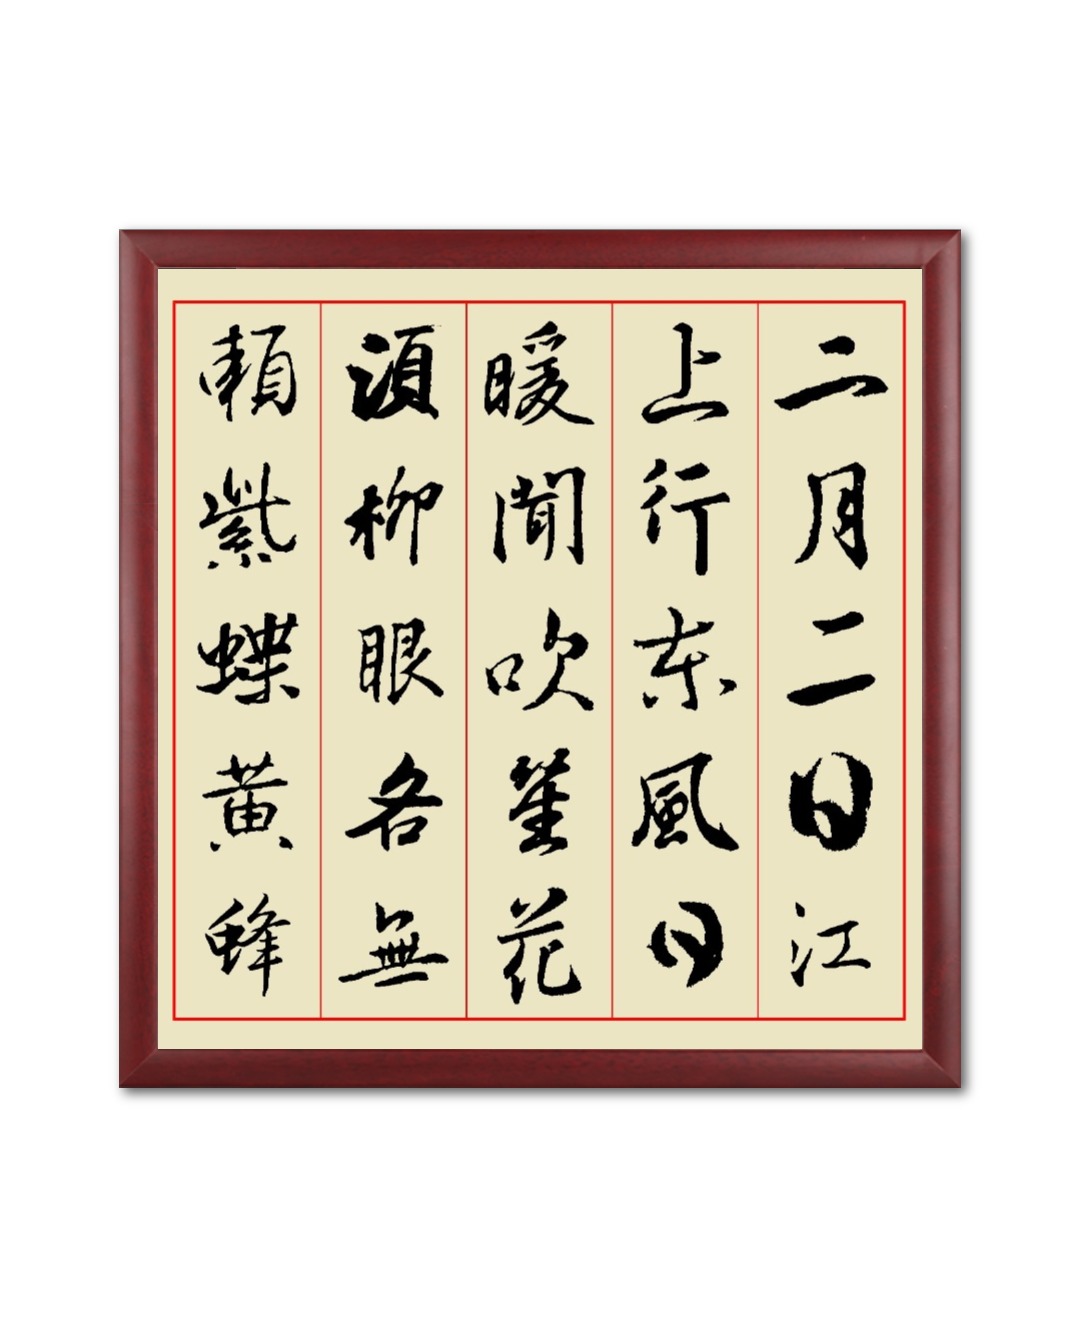 二月二日江
上行東風日
暖聞吹笙花
須柳眼各無
賴紫蝶黃蜂